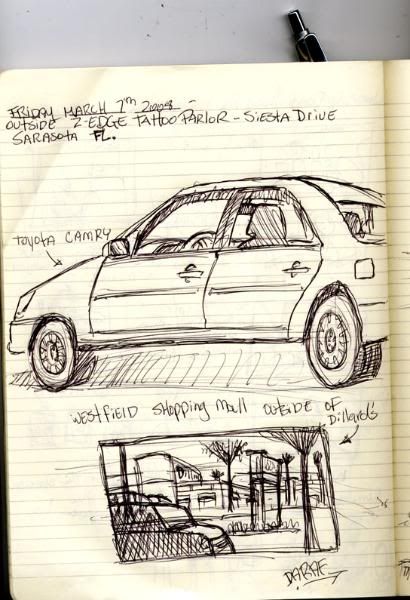 FRIDAY MARCH 7TH 2008 -
OUTSIDE 2-EDGE TATTOO PARLOR - SIESTA DRIVE
SARASOTA FL.
TOYOTA CAMRY
WESTFIELD SHOPPING Mall OUTSIDE OF
Dillard's